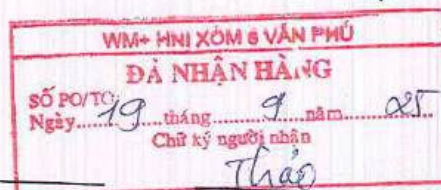 WM+ HNI XÓM 6 VĂN PHÚ
ĐÃ NHẬN HÀNG
SỐ PO/TO:
Ngày....19....tháng....9....năm....25....
Chữ ký người nhận
Thảo